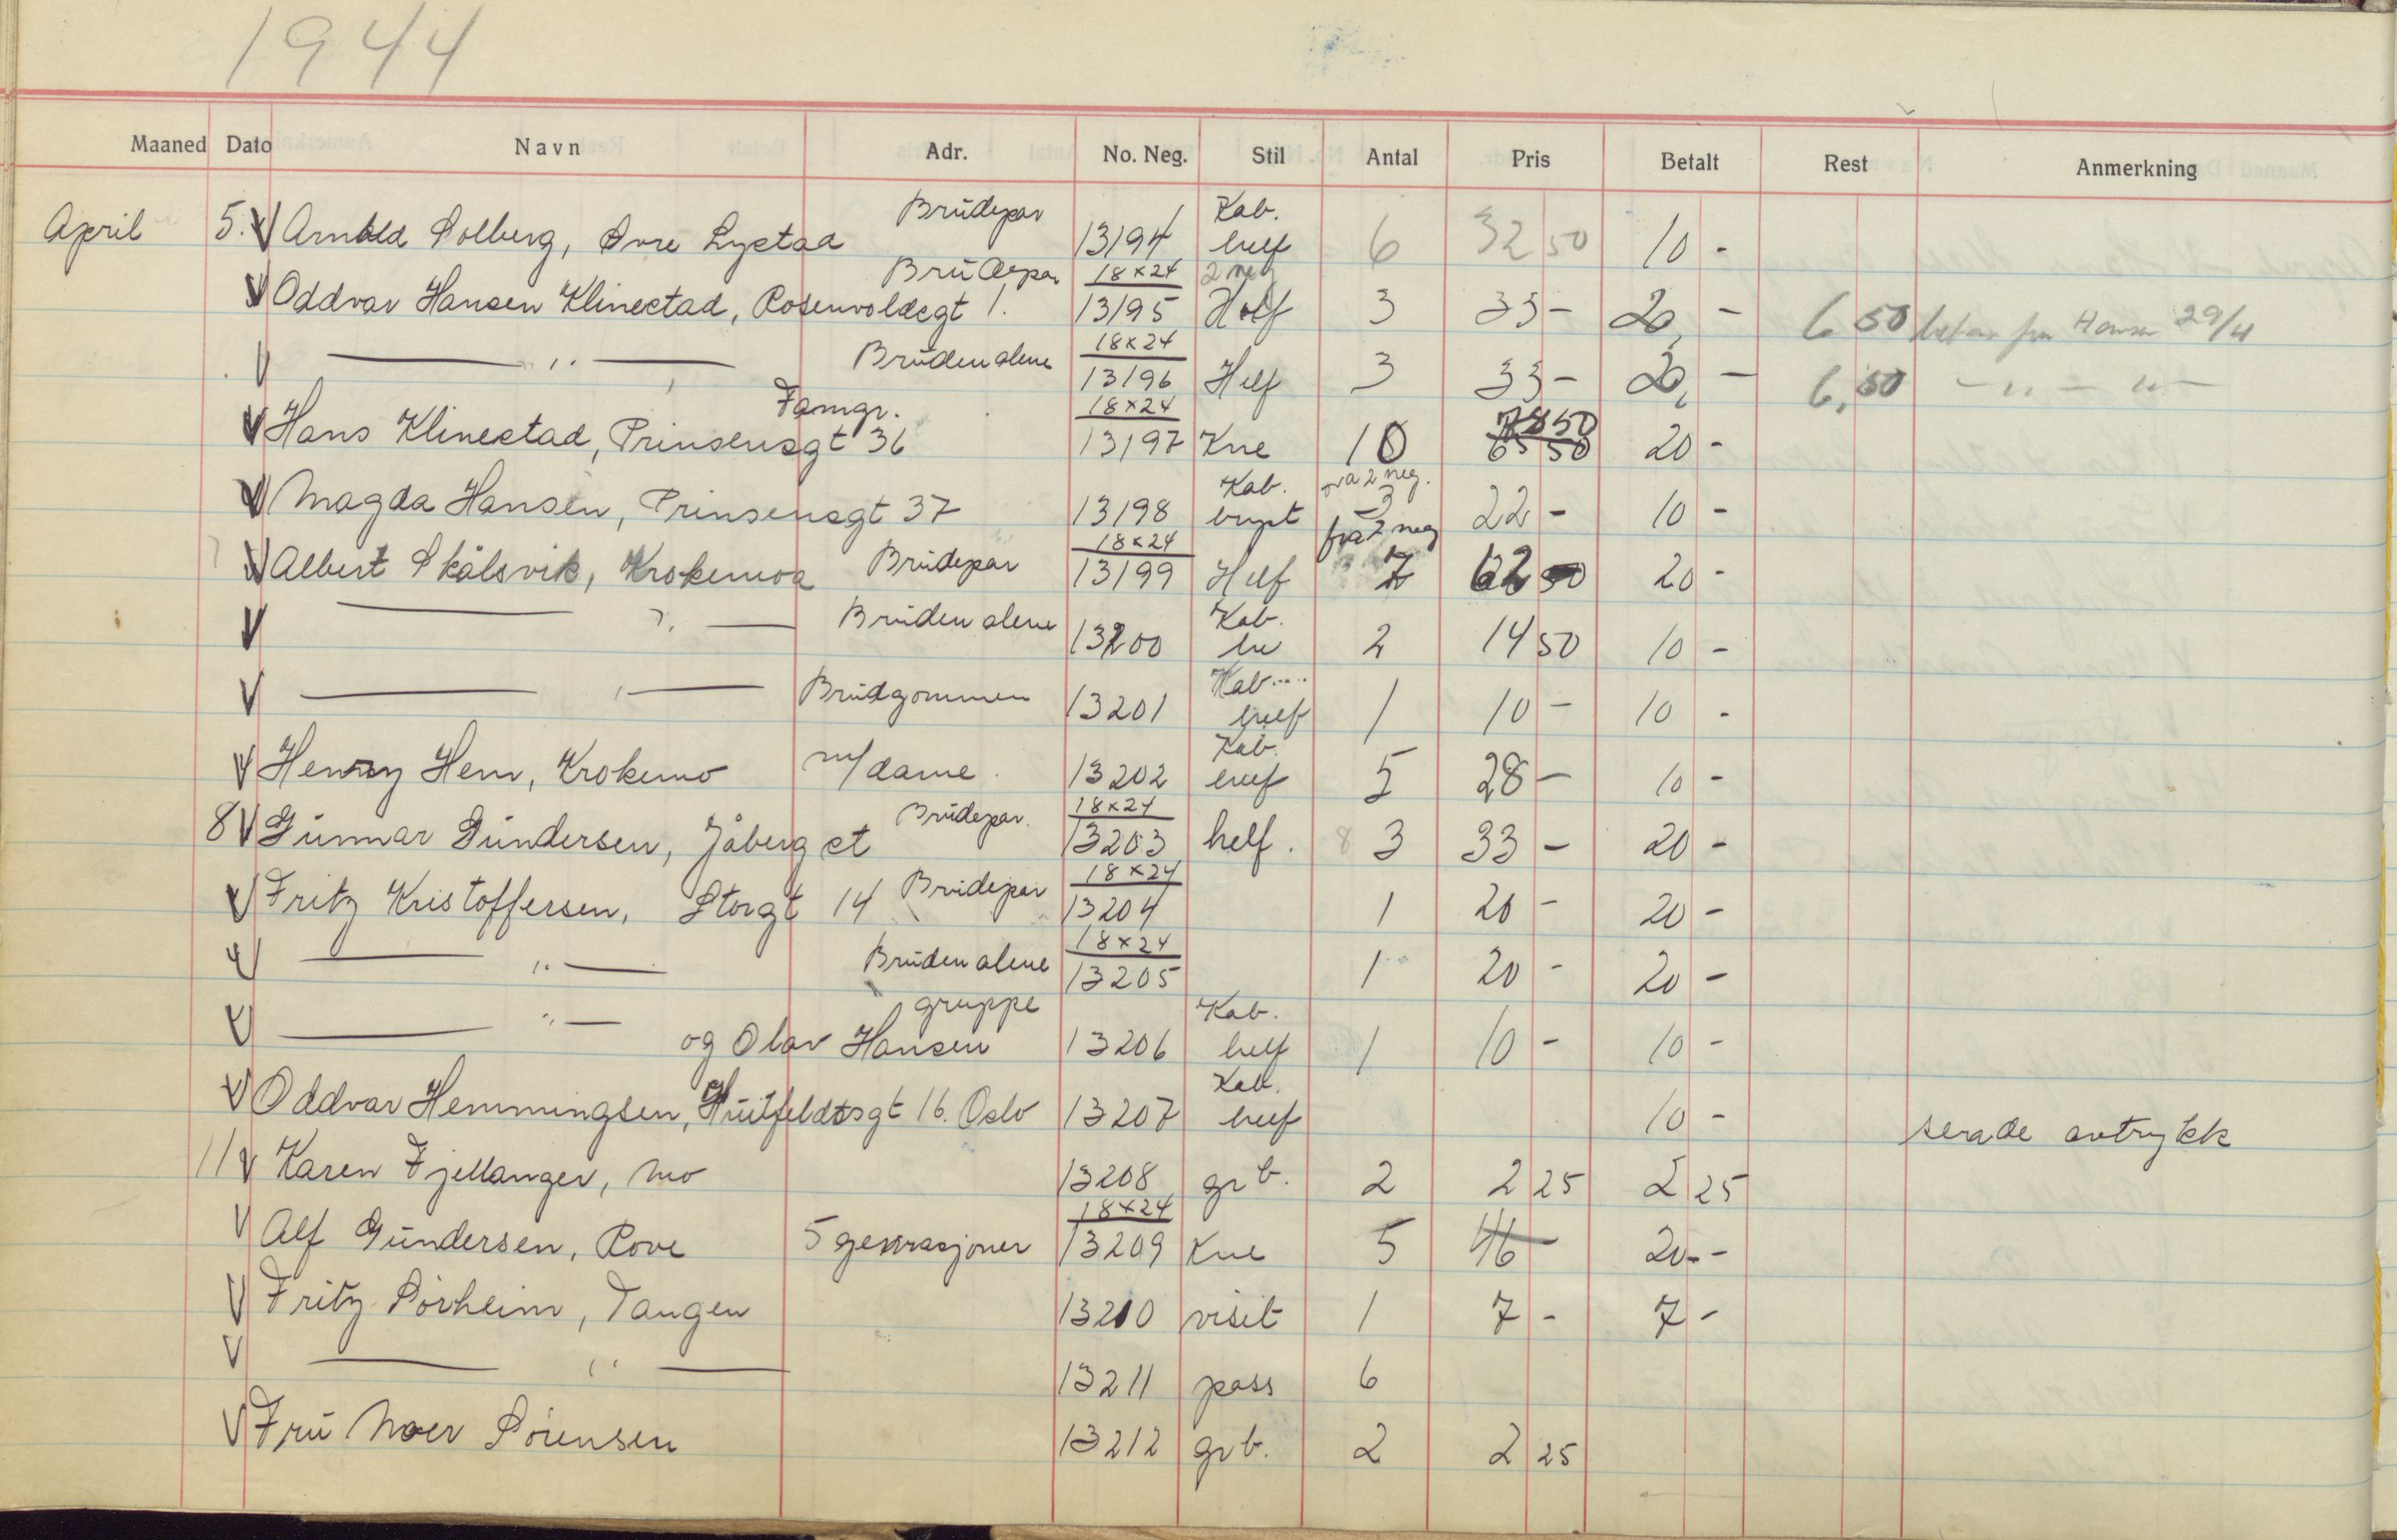 1944
Maaned Dato Navn Adr. No. Neg. Stil Antal Pris Betalt Rest Anmerkning
Brudepar Kab.
April 5. V Arnold Solberg, Øvre Lystad 13194 helf 6 32 50 10 -
Brudepar 18x24 2 neg
V Oddvar Hansen Klinestad, Rosenvoldsgt 1. 13195 Helf 3 33 - 20, - 6 50 29/4
18x24
V — ,, — Bruden alene 13196 Helf 3 33 - 20, - 6,50 — ,, — ,, —
Famgr. 18x24 78 50
V Hans Klinestad, Prinsensgt 36 13197 Kne 10 65 50 20 -
Kab. fra 2 neg.
V Magda Hansen, Prinsensgt 37 13198 bryst 3 22 - 10 -
18x24 fra 2 neg
V Albert Skålsvik, Krokemoa Brudepar 13199 Helf 7 62 50 20 -
Kab.
V — ,, — Bruden alene 13200 he 2 14 50 10 -
Kab.
V — ,, — Brudgommen 13201 helf 1 10 - 10 -
Kab.
V Henry Hem, Krokemo m/dame. 13202 helf 5 28 - 10 -
Brudepar. 18x24
8 V Gunnar Gundersen, Jåberg st 13203 helf. 8 3 33 - 20 -
18x24
V Fritz Kristoffersen, Storgt 14 Brudepar 13204 1 20 - 20 -
18x24
V — ,, — Bruden alene 13205 1 20 - 20 -
gruppe Kab.
V — ,, — og Olav Hansen 13206 helf 1 10 - 10 -
Kab.
V Oddvar Hemmingsen, Huitfeldtsgt 16. Oslo 13207 helf 10 - avtrykk
11 V Karen Fjellanger, Mo 13208 gr b. 2 2 25 2 25
18x24
V Alf Gundersen, Rove 5 generasjoner 13209 Kne 5 46 - 20 - -
V Fritz Sørheim, Tangen 13210 visit 1 7 - 7 -
V — ,, — 13211 pass 6
V Fru Moer Sørensen 13212 gr b. 2 2 25